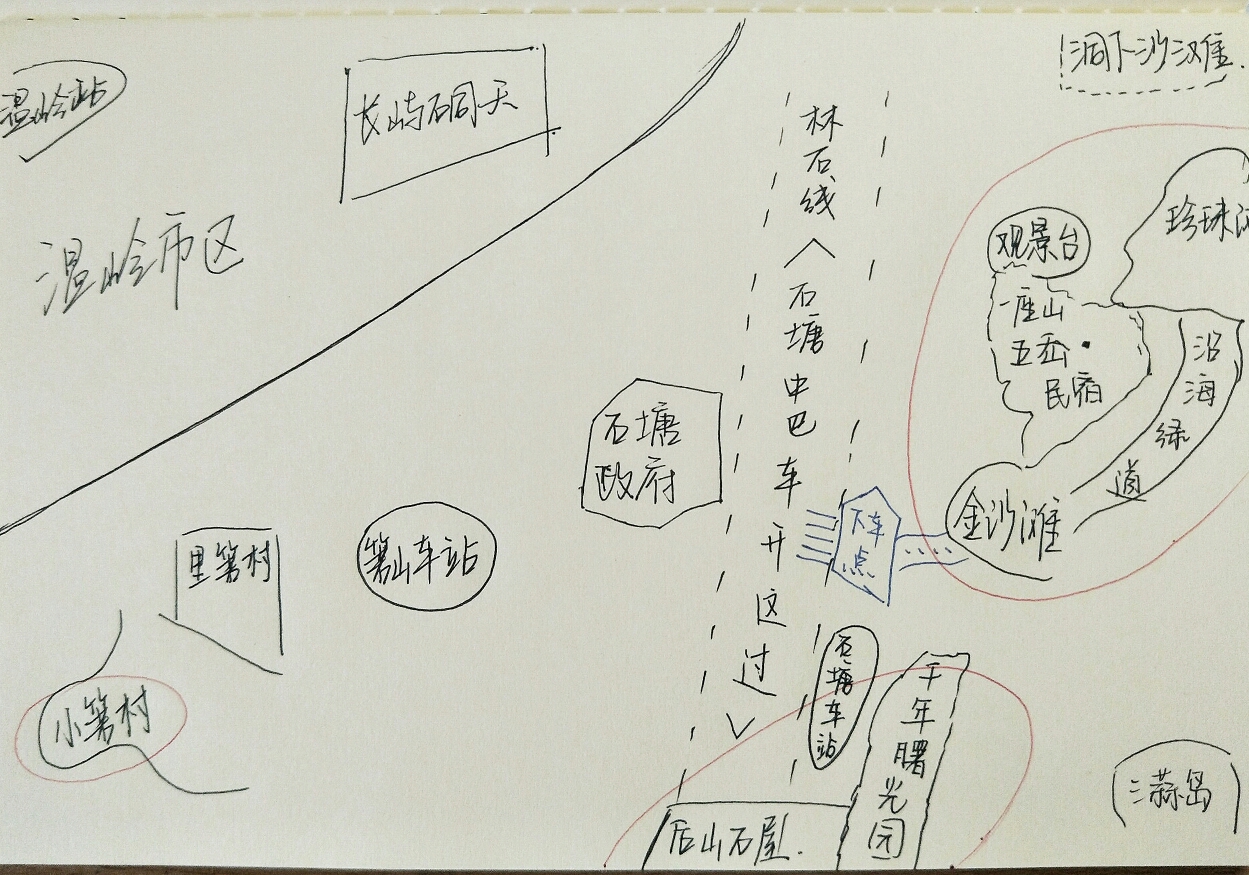 温岭站
长屿硐天
洞下沙滩.
温岭市区
林石线〈石塘中巴车开这过〉
观景台
珍珠
一座山
五岙·
民宿
沿海绿道
石塘
政府
下车
点
金沙滩
里箬村
箬山车站
小箬村
石塘车站
千年曙光园
后山石屋.
三蒜岛